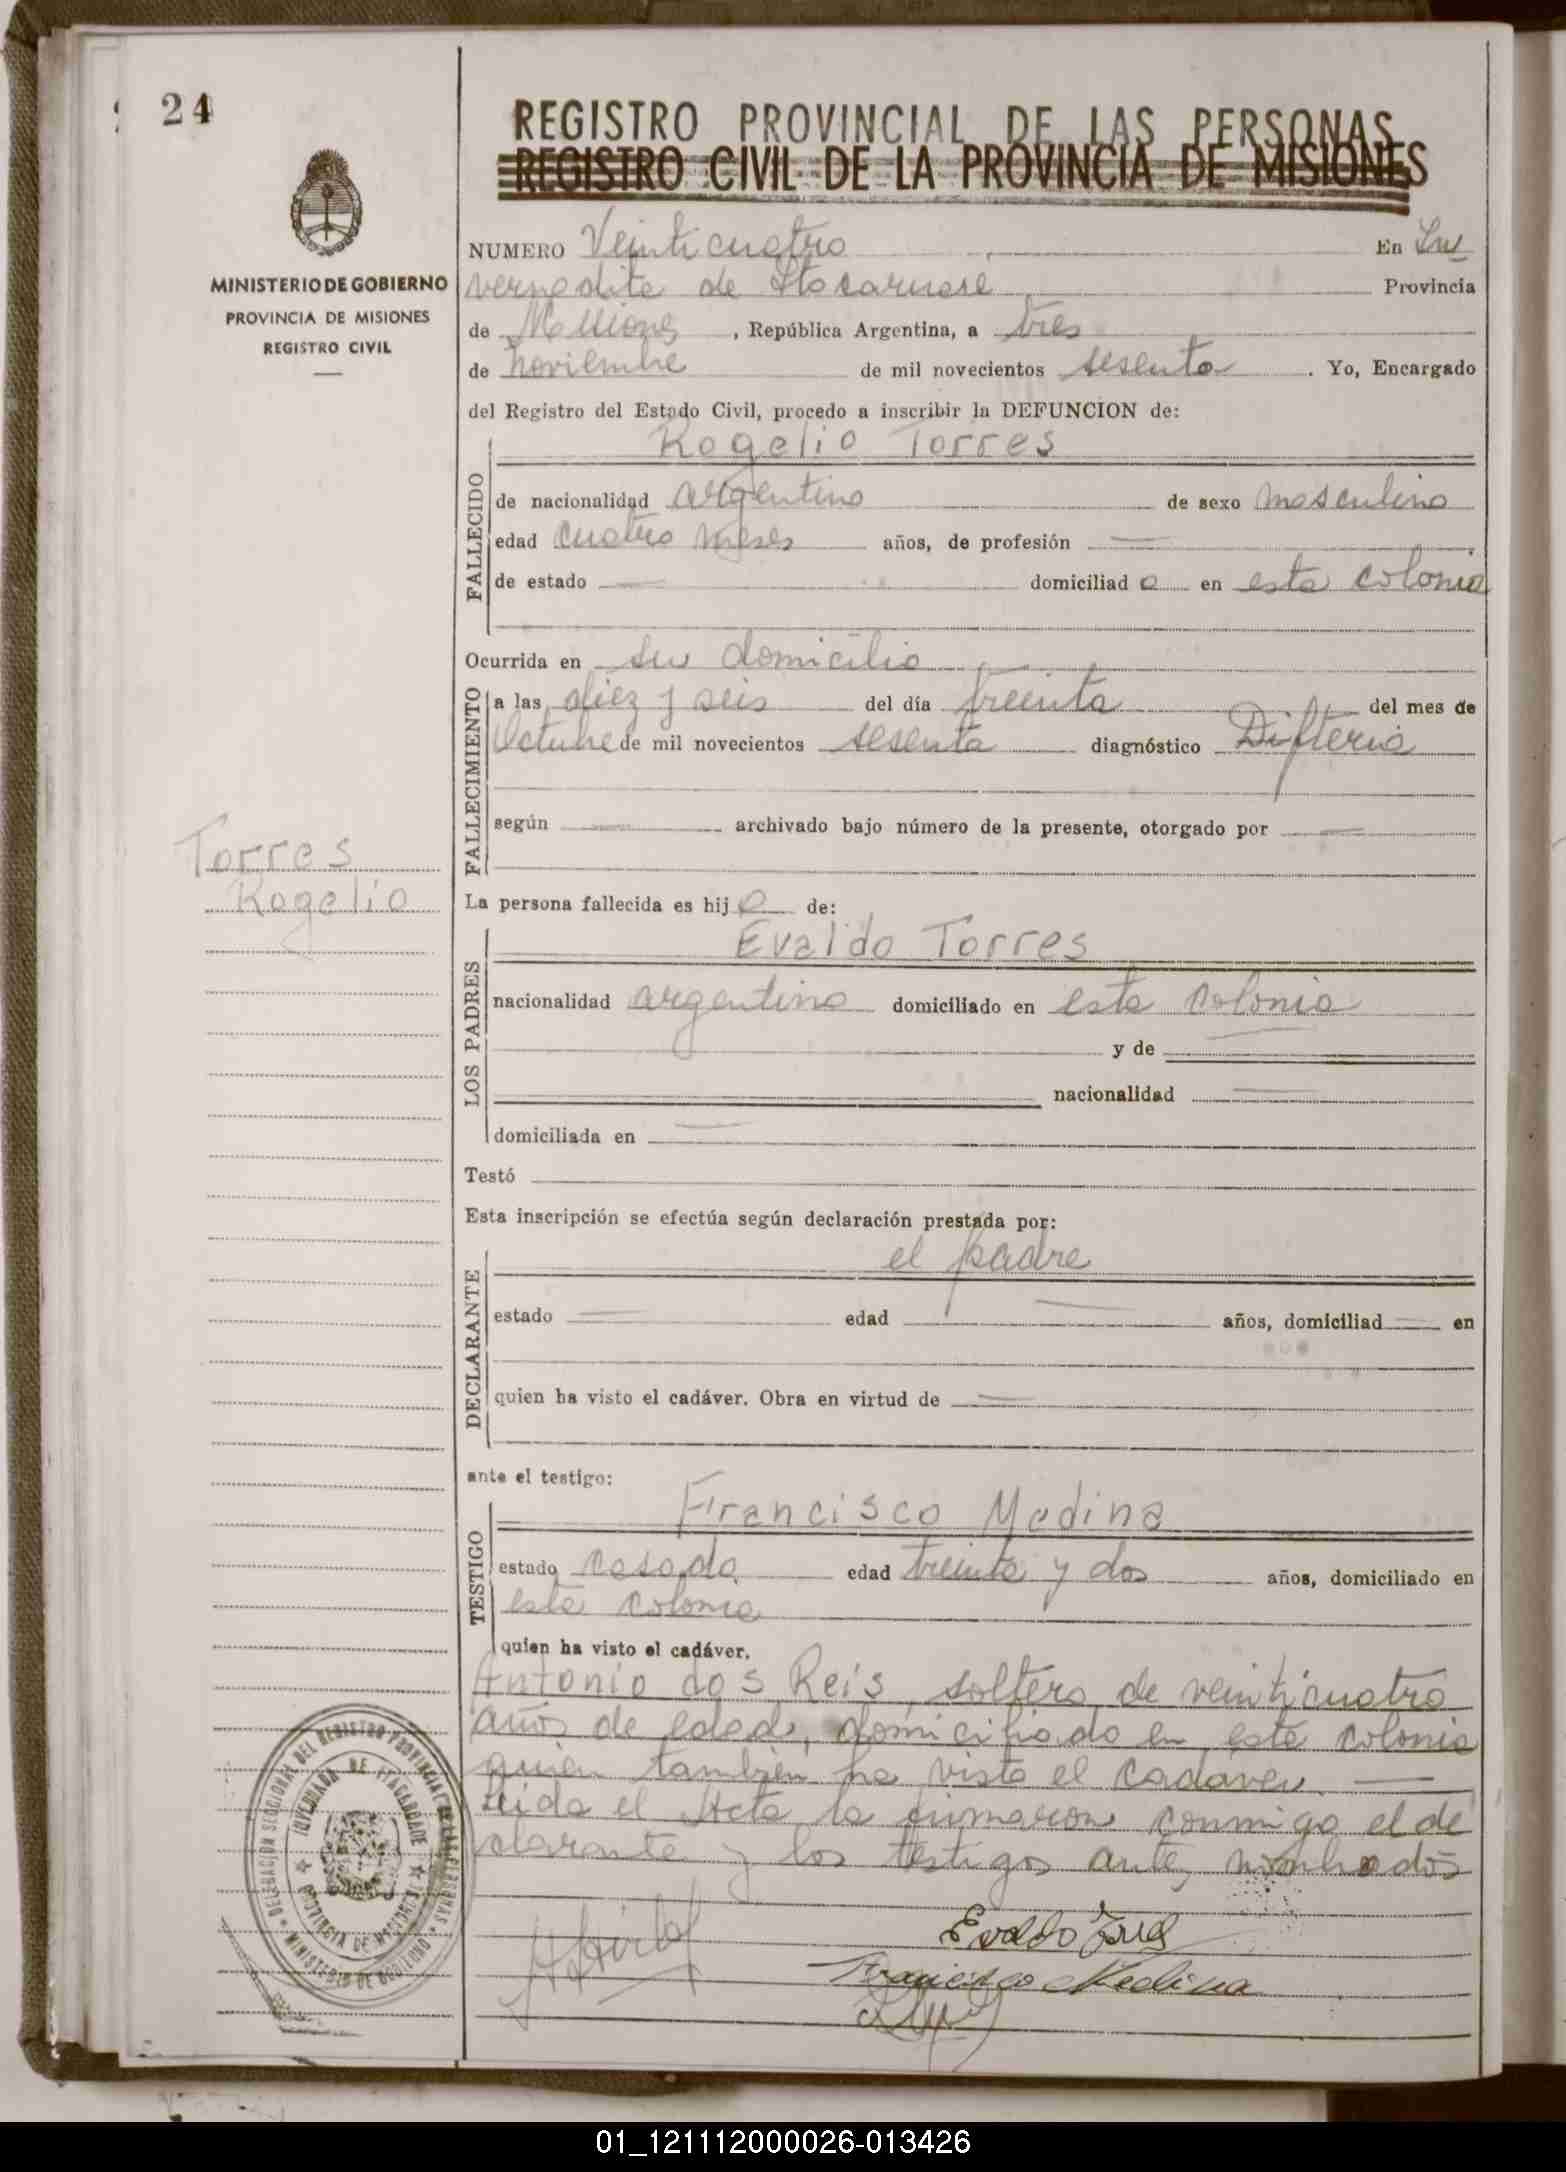 24
REGISTRO PROVINCIAL DE LAS PERSONAS
REGISTRO CIVIL DE LA PROVINCIA DE MISIONES
MINISTERIO DE GOBIERNO
PROVINCIA DE MISIONES
REGISTRO CIVIL
NUMERO Veinticuatro En In
vernadita de Itacaruare Provincia
de Misiones, República Argentina, a tres
de noviembre de mil novecientos sesenta. Yo, Encargado
del Registro del Estado Civil, procedo a inscribir la DEFUNCION de:
Rogelio Torres
FALLECIDO
de nacionalidad argentino de sexo masculino
edad cuatro meses años, de profesión —
de estado — domiciliado en esta colonia
Ocurrida en su domicilio
FALLECIMIENTO
a las diez y seis del día treinta del mes de
Octubre de mil novecientos sesenta diagnóstico Difteria
según — archivado bajo número de la presente, otorgado por —
Torres
Rogelio
La persona fallecida es hijo de:
LOS PADRES
Evaldo Torres
nacionalidad argentino domiciliado en esta colonia
y de —
nacionalidad —
domiciliada en —
Testó
Esta inscripción se efectúa según declaración prestada por:
DECLARANTE
el padre
estado — edad — años, domiciliad — en
quien ha visto el cadáver. Obra en virtud de —
ante el testigo:
TESTIGO
Francisco Medina
estado casado edad treinta y dos años, domiciliado en
esta colonia
quien ha visto el cadáver.
Antonio dos Reis, soltero, de veinticuatro
años de edad, domiciliado en esta colonia
quien también ha visto el cadaver —
Leida el Acta la firmaron conmigo el de
clarante y los testigos ante nombrados
DELEGACION SECCIONAL DEL REGISTRO PROVINCIAL DE LAS PERSONAS
MINISTERIO DE GOBIERNO
PROVINCIA DE MISIONES
Francisco Medina
01_121112000026-013426